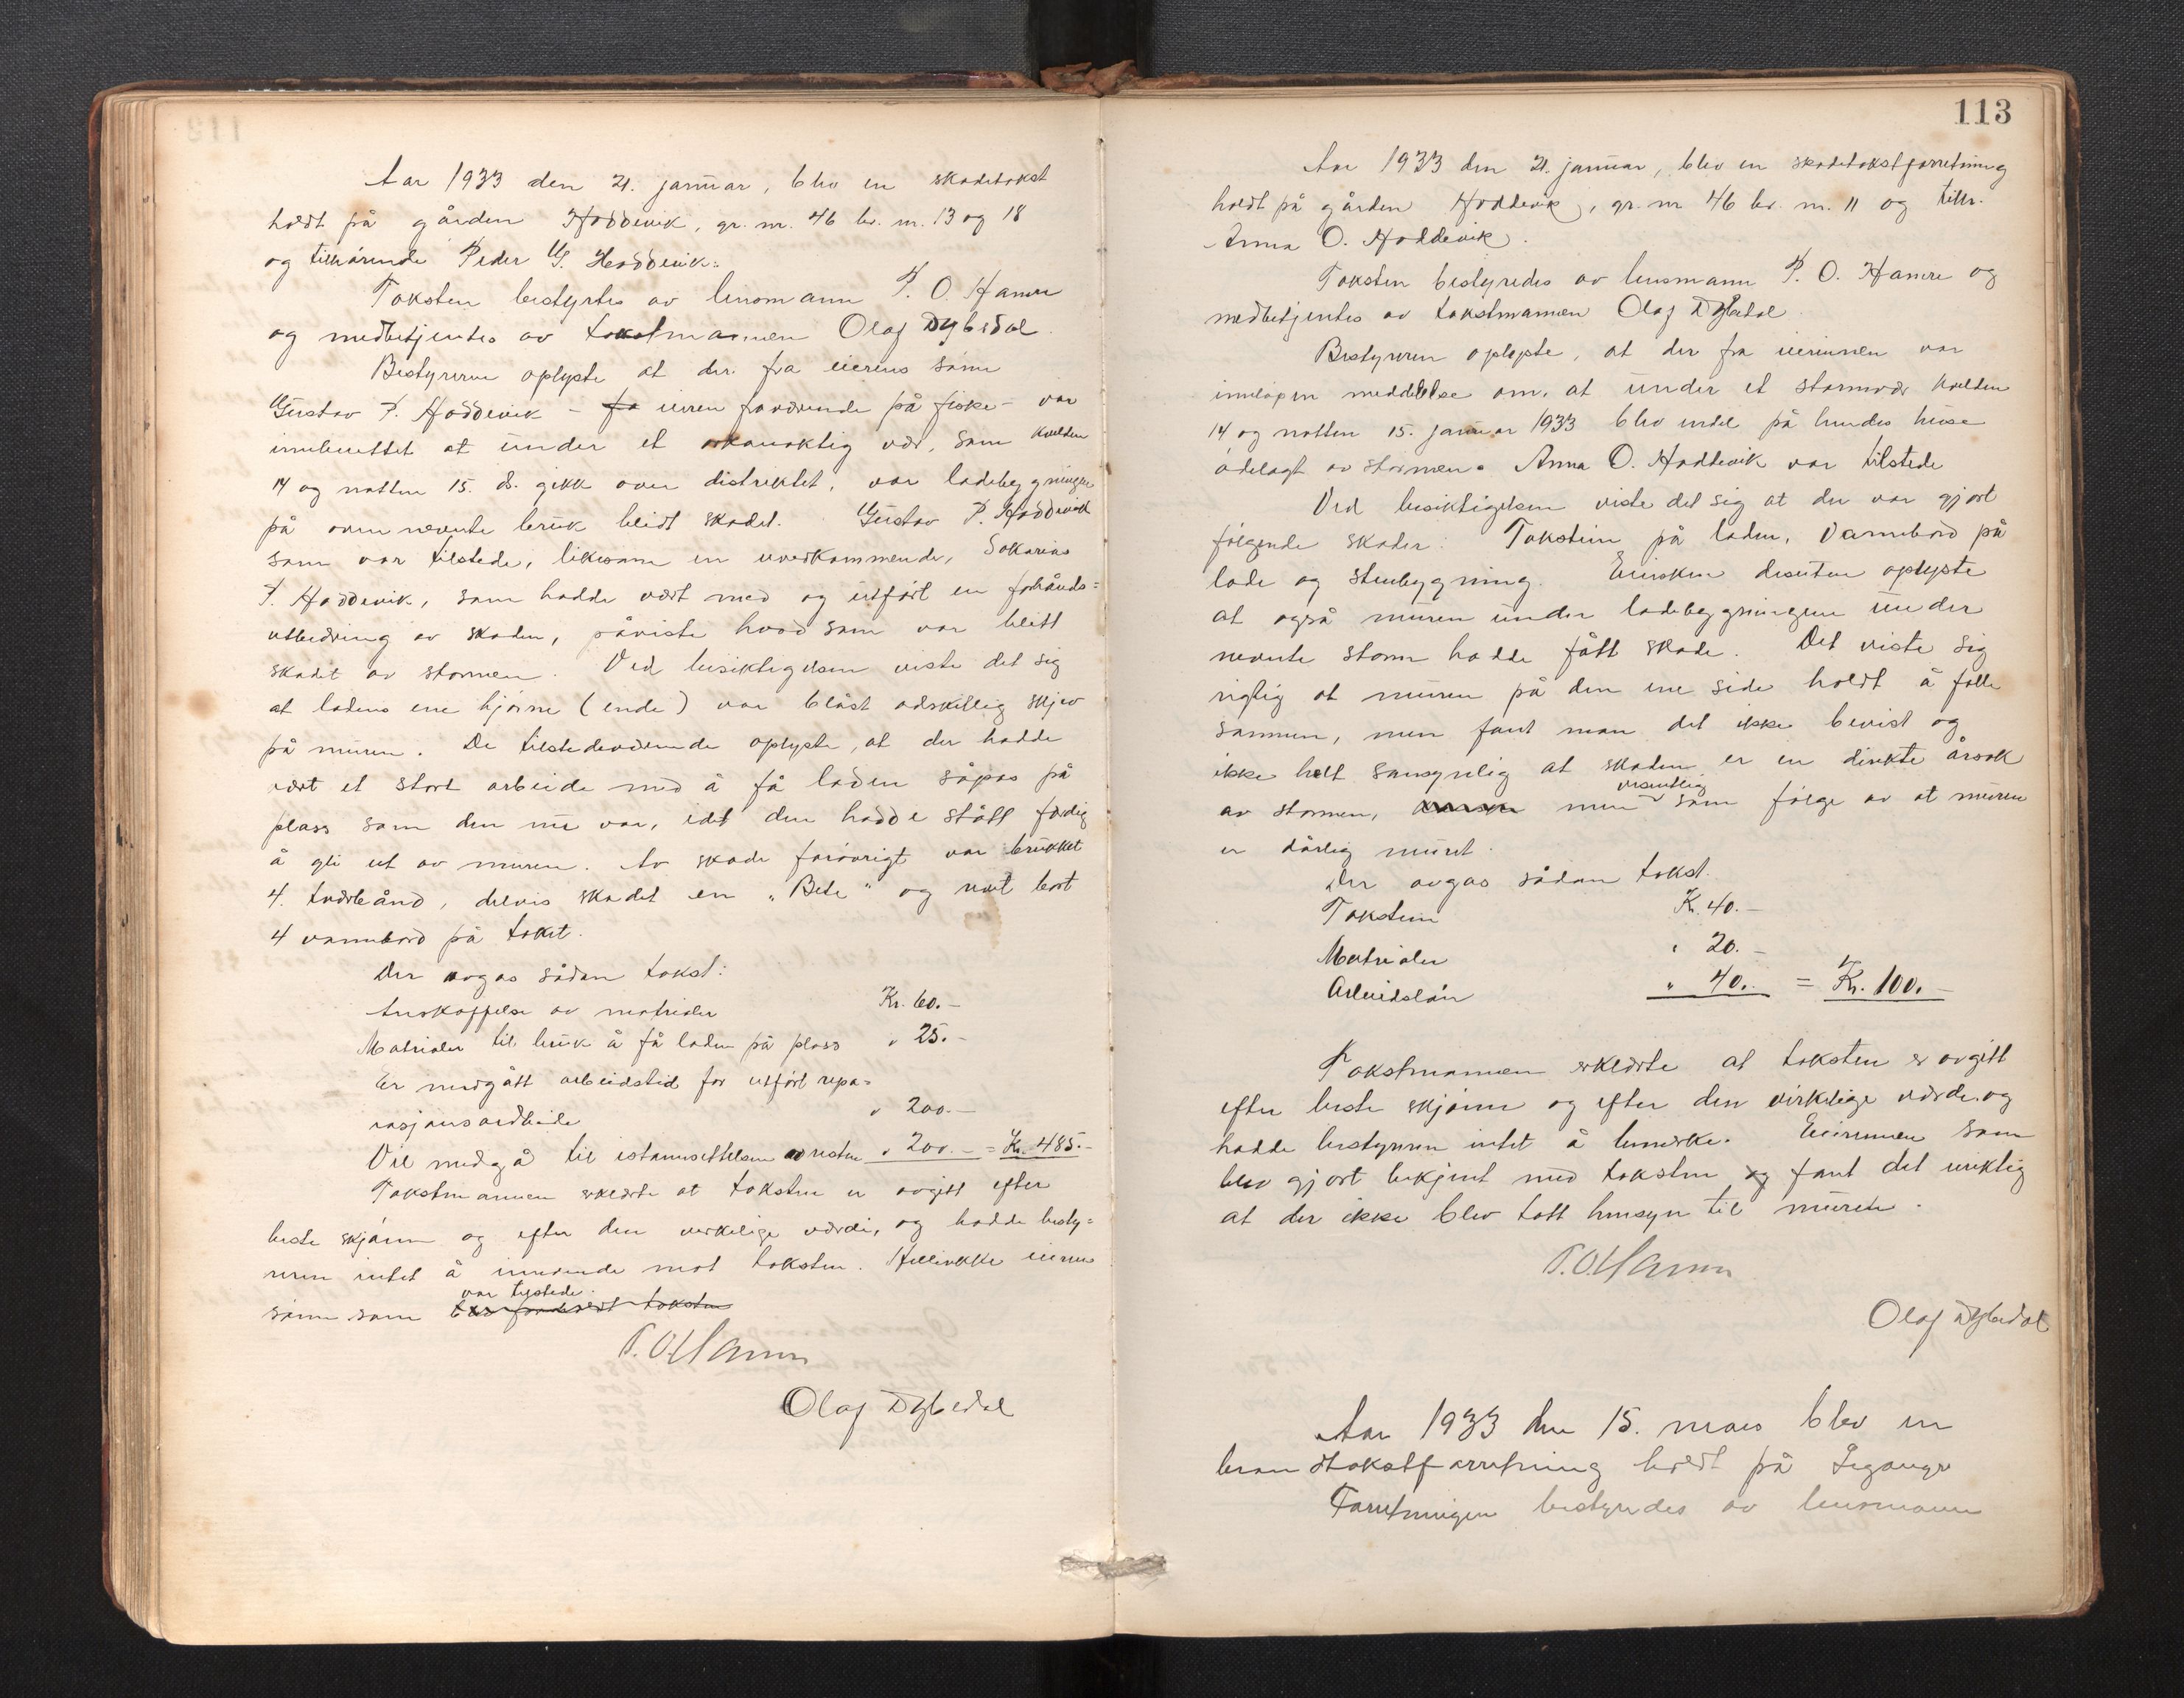 Aar 1933 den 21. januar, blev en skadetakst
holdt på gården Hoddevik, gr. nr. 46 br. nr. 13 og 18
og tilhørende Peder G. Hoddevik.
Taksten bestyrtes av lensmann P. O. Hamre
og medbetjentes av takstmannen Olaf Dybedal.
Bestyreren oplyste at der fra eierens sønn
Gustav P. Hoddevik – fa eieren fraværende på fiske – var
innberettet at under et orkanaktig vær, som kvelden
14 og natten 15. ds. gikk over distriktet, var ladebygningen
på ovennevnte bruk blidt skadet. Gustav P. Hoddevik
som var tilstede, likesom en uvedkommende, Sakarias
P. Hoddevik, som hadde vært med og utført en forhånds=
utbedring av skaden, påviste hvad som var blitt
skadet av stormen. Ved besiktigelsen viste det sig
at ladens ene hjørne (ende) var blåst adskillig skjev
på muren. De tilstedeværende oplyste, at der hadde
vært et stort arbeide med å få laden såpas på
plass som den nu var, idet den hadde stått færdig
å gli ut av muren. Av skade forøvrigt var brukket
4. tverbånd, delvis skadet en „Bete“ og revet bort
4 vannbord på taket.
Der avgas sådan takst:
Anskaffelse av matrialer Kr. 60.-
Matrialer til bruk å få laden på plass " 25.-
Er medgått arbeidstid for utført repa=
rasjonsardbeide " 200.-
Vil medgå til istannsettelsen av resten " 200.- = Kr. 485.-
Takstmannen erklærte at taksten er avgitt efter
beste skjønn og efter den verkelige værdi, og hadde besty=
reren intet å innvende mot taksten. Hellerikke eierens
var tilstede.
sønn som blev forelæst taksten
P.O.Hamre
Olaf Dybedal
113
Aar 1933 den 21. januar, blev en skadetakstforretning
holdt på gården Hoddevik, gr. nr 46 br. nr. 11 og tilh.
Anna O. Hoddevik.
Taksten bestyredes av lensmann P. O. Hamre og
medbetjentes av takstmannen Olaf Dybedal.
Bestyreren oplyste, at der fra eierinnen var
innløpen meddelelse om, at under et stormvær kvelden
14 og natten 15. januar 1933 blev endel på hendes huse
ødelagt av stormen. Anna O. Hoddevik var tilstede
Ved besiktigelsen viste det sig at der var gjort
følgende skader: Takstein på laden, Vannbord på
lade og stenbygning. Eiersken desuten oplyste
at også muren under ladebygningen under
nevnte storm hadde fått skade. Det viste sig
rigtig at muren på den ene side holdt å falle
sammen, men fant man det ikke bevist og
ikke helt sansynlig at skaden er en direkte årsak
vesentlig
av stormen, men som følge av at muren
er dårlig muret.
Der avgas sådan takst.
Takstein Kr. 40.-
Matrialer " 20.-
Arbeidsløn " 40.- = Kr. 100.-
Takstmannen erklærte at taksten er avgitt
efter beste skjønn og efter den virkelige værde, og
hadde bestyreren intet å bemerke. Eierinnen som
blev gjort bekjent med taksten og fant det uriktig
at der ikke blev tatt hensyn til muren.
P.O.Hamre
Olaf Dybedal
Aar 1933 den 15. mars blev en
brandtakstforretning holdt på
Forretningen bestyredes av lensmann